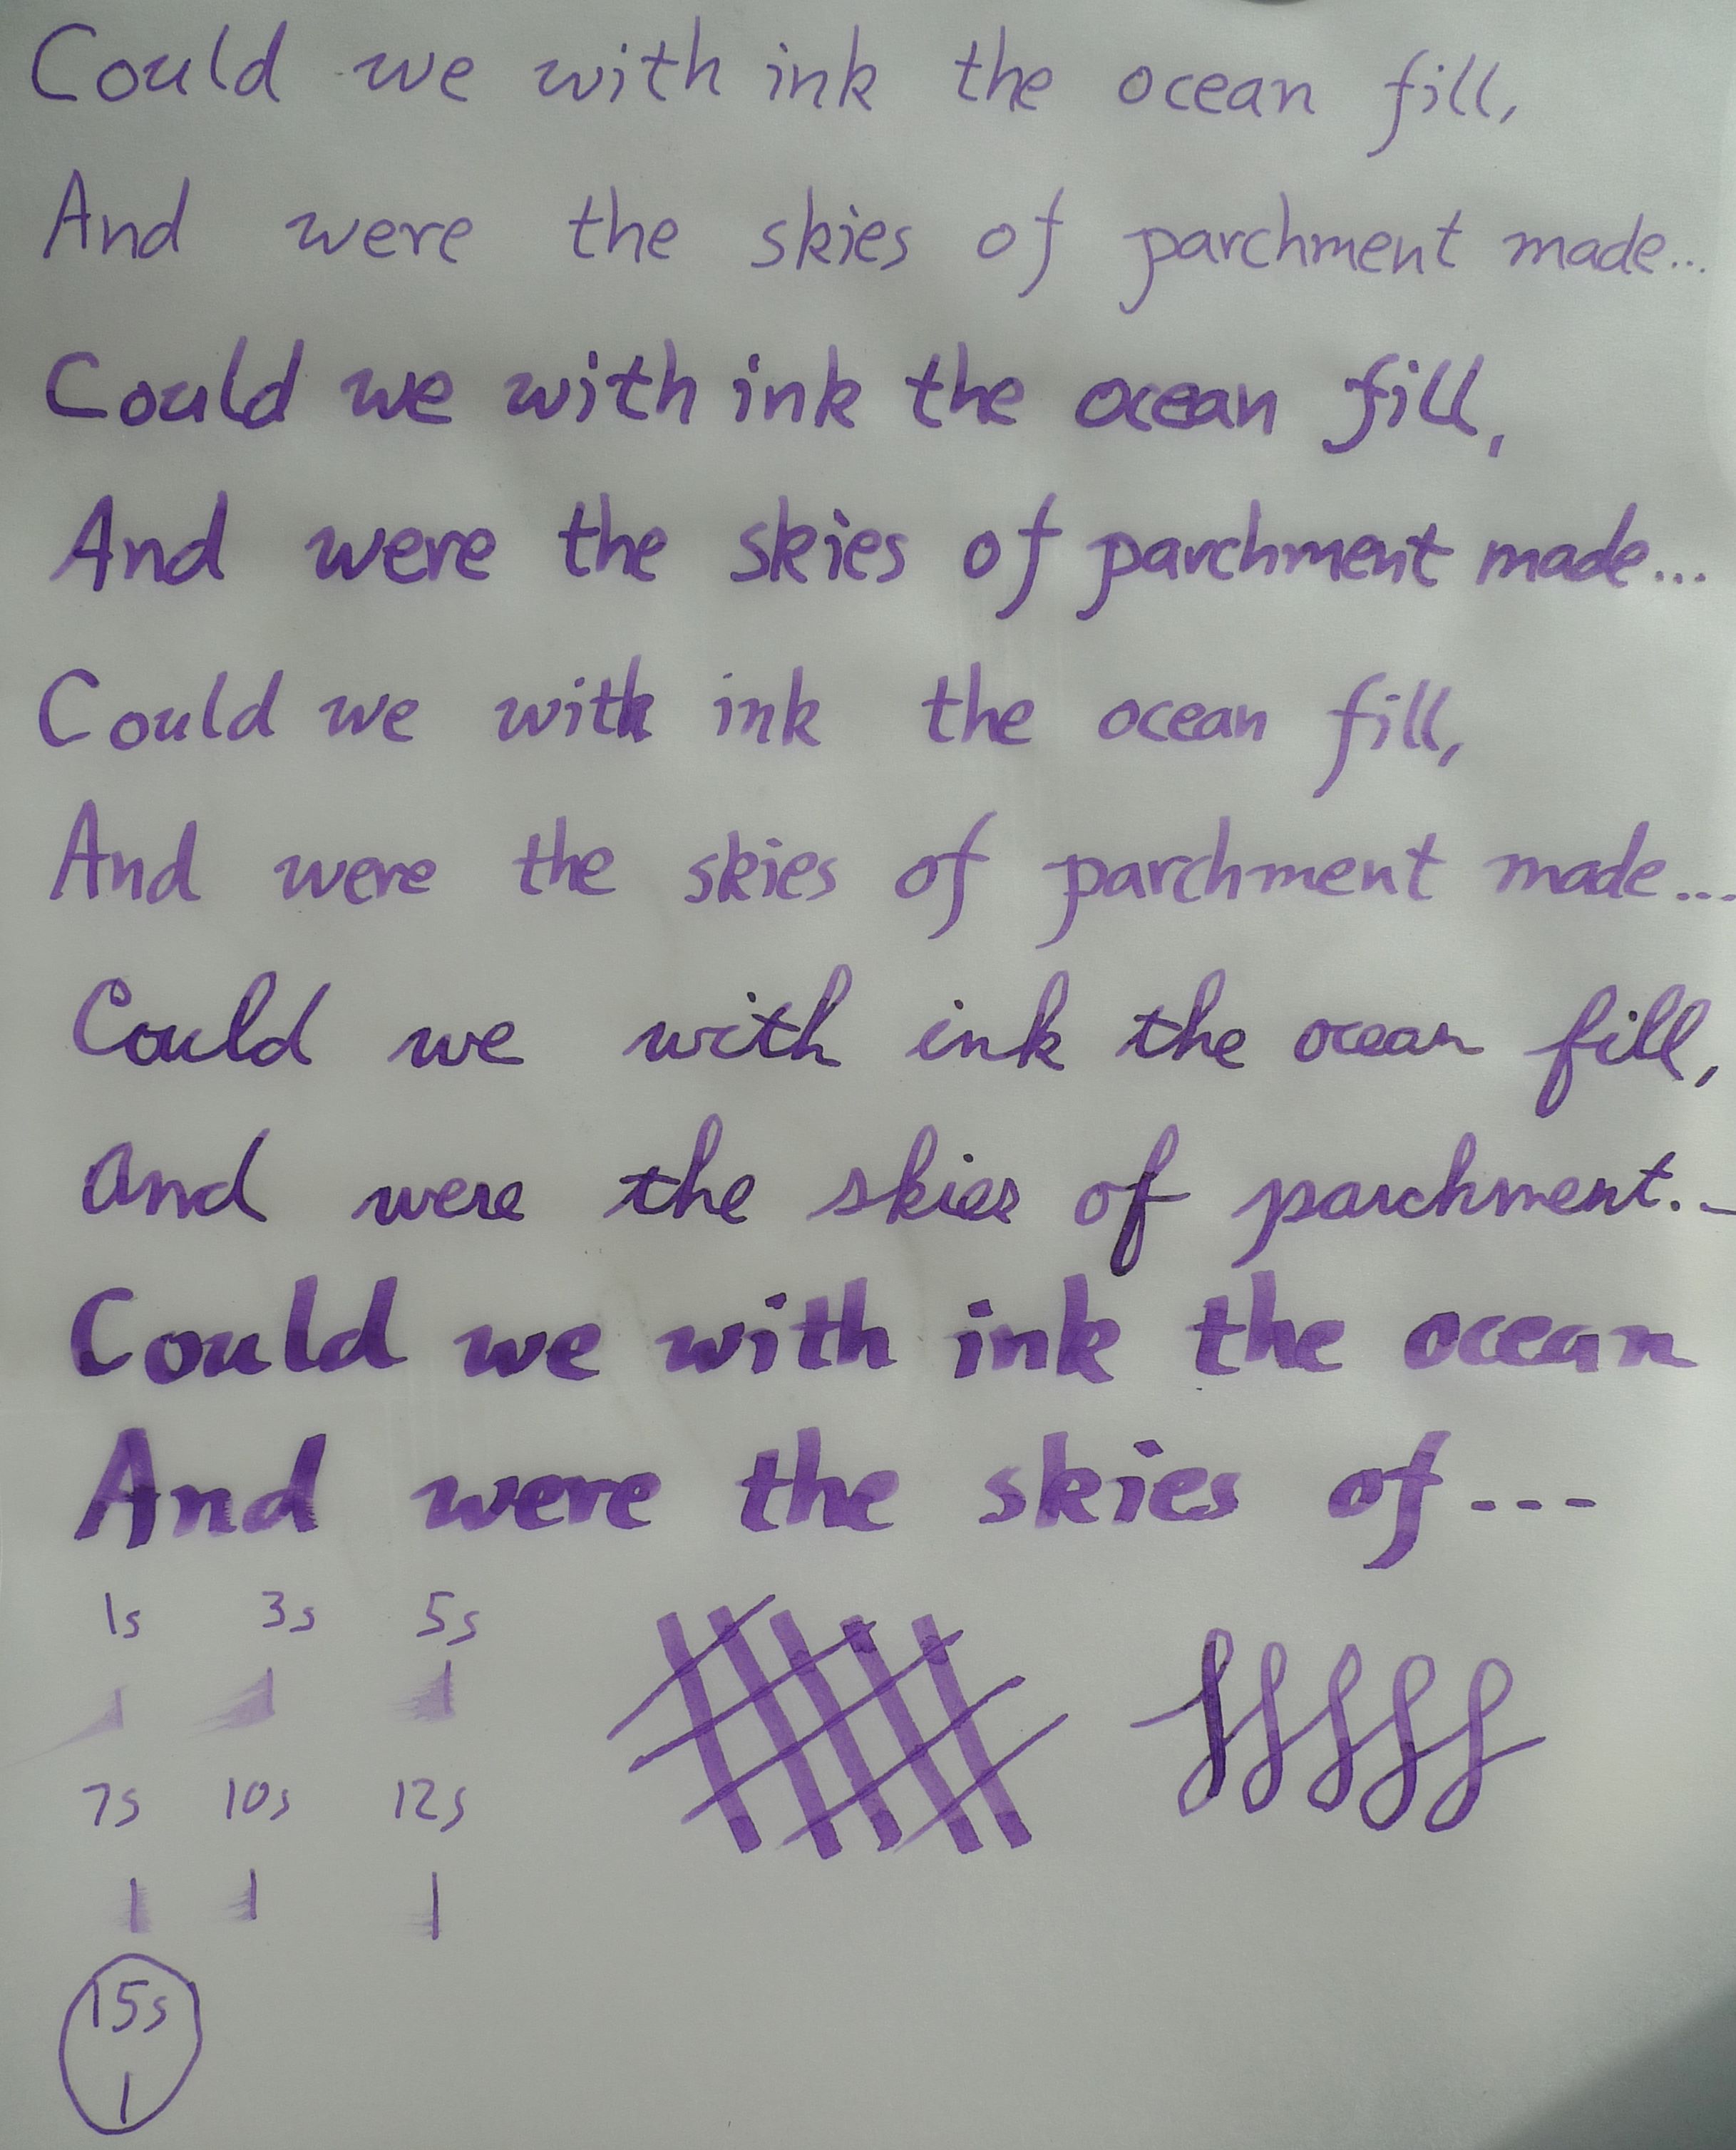 Could we with ink the ocean fill,
And were the skies of parchment made...
Could we with ink the ocean fill,
And were the skies of parchment made...
Could we with ink the ocean fill,
And were the skies of parchment made...
Could we with ink the ocean fill,
And were the skies of parchment...
Could we with ink the ocean
And were the skies of ---
1s 3s 5s
7s 10s 12s
15s